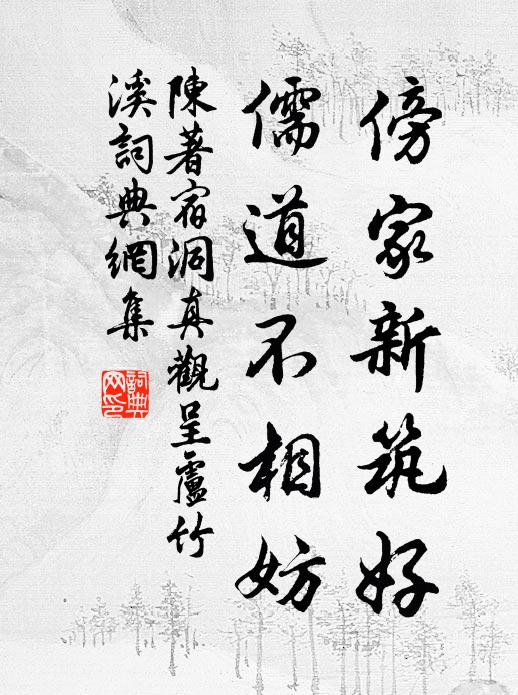 傍家新筑好
儒道不相妨
陳著宿洞真觀呈盧竹
溪詞典網集
詞典
网印